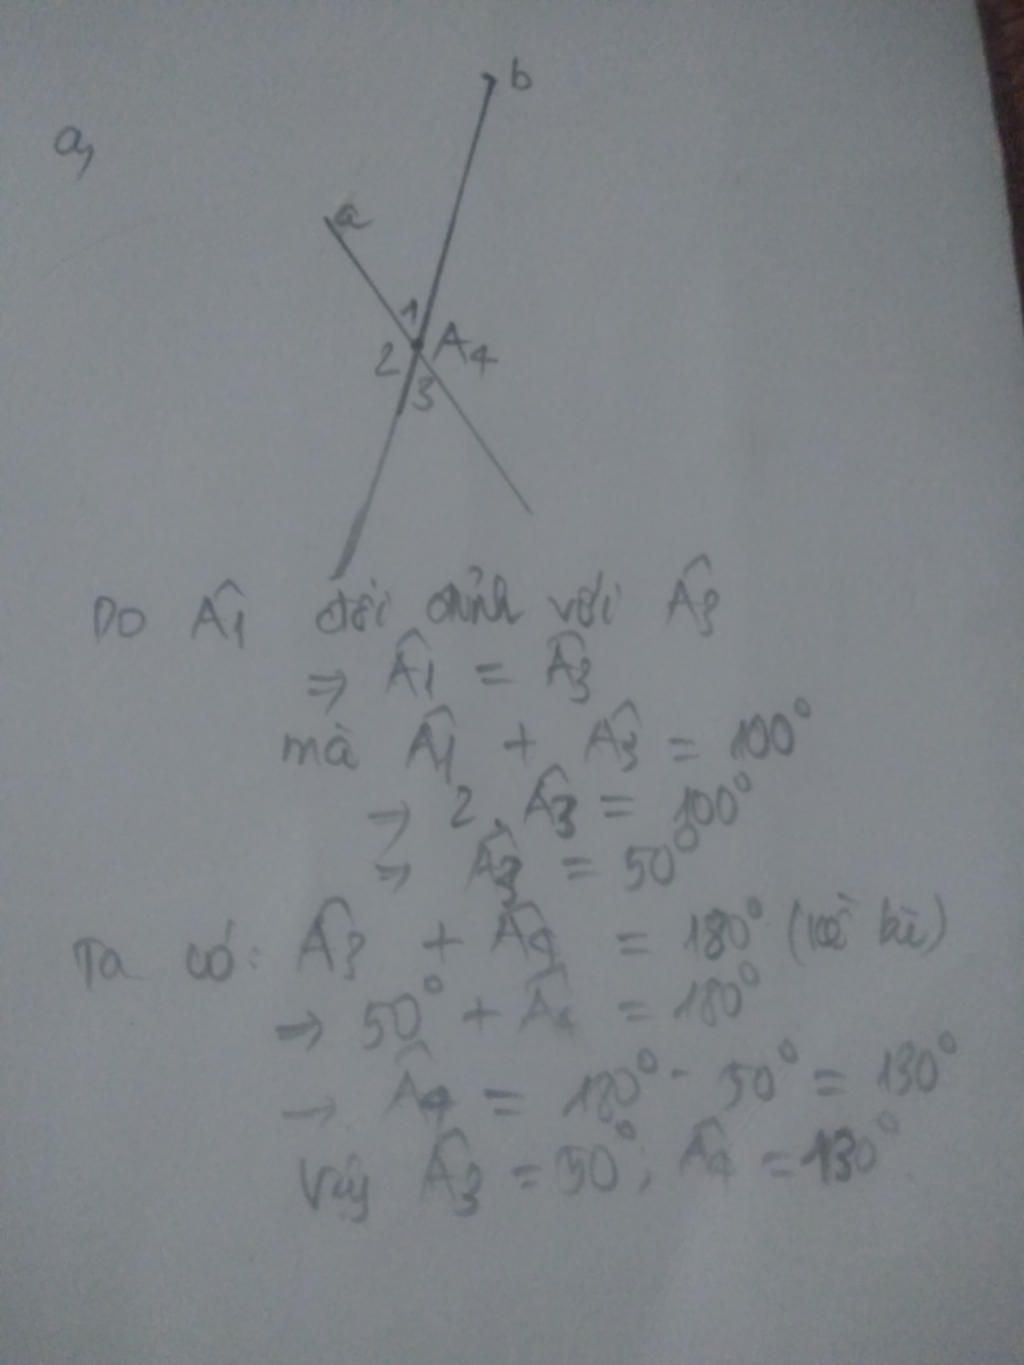 a,
b
a
1
2 A4
3
Do Â1 đối đỉnh với Â3
⇒ Â1 = Â3
mà Â1 + Â3 = 100°
→ 2. Â3 = 100°
⇒ Â3 = 50°
Ta có: Â3 + Â4 = 180° (kề bù)
→ 50° + Â4 = 180°
→ Â4 = 180° - 50° = 130°
Vậy Â3 = 50°; Â4 = 130°